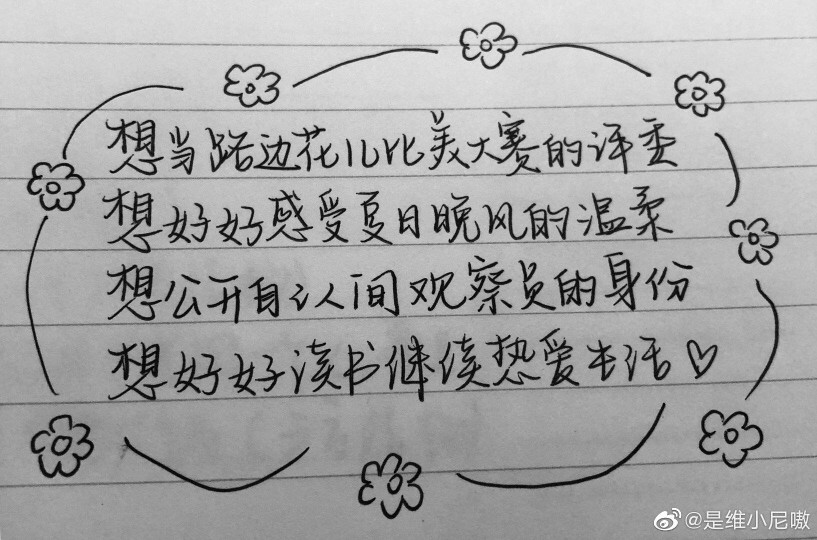 想当路边花儿比美大赛的评委
想好好感受夏日晚风的温柔
想公开自认间观察员的身份
想好好读书继续热爱生活♡
@是维小尼嗷